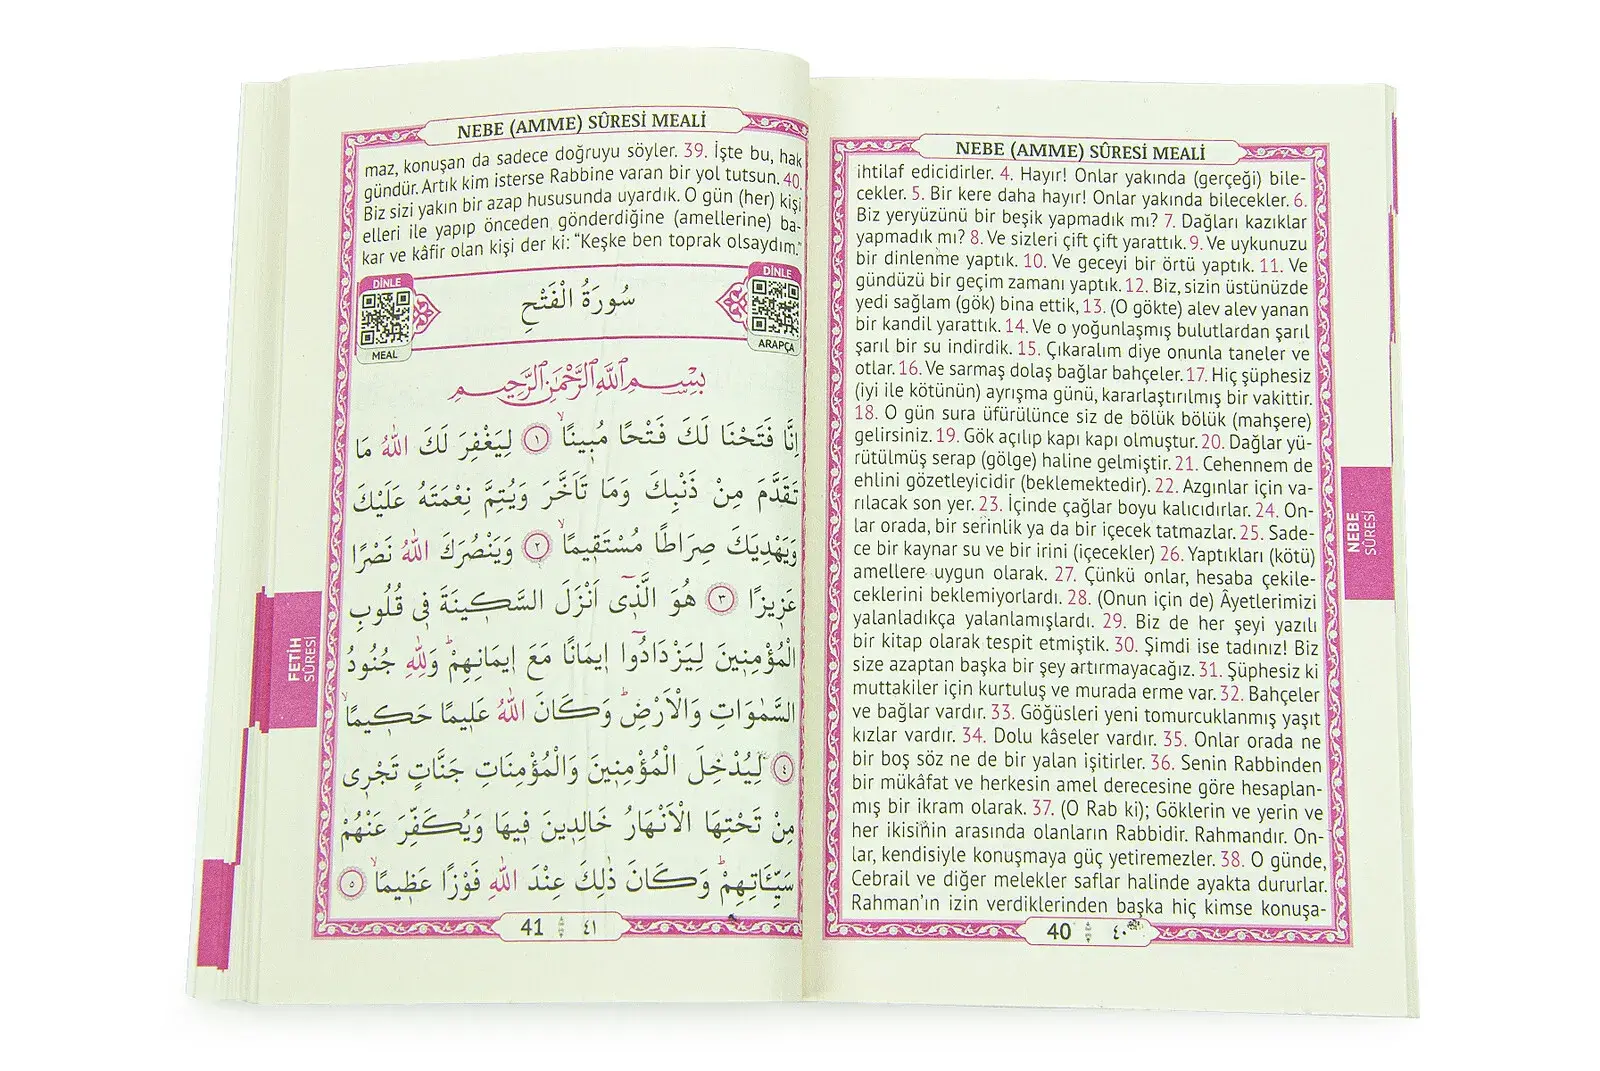 NEBE (AMME) SÛRESİ MEALİ
ihtilaf edicidirler. 4. Hayır! Onlar yakında (gerçeği) bile-
cekler. 5. Bir kere daha hayır! Onlar yakında bilecekler. 6.
Biz yeryüzünü bir beşik yapmadık mı? 7. Dağları kazıklar
yapmadık mı? 8. Ve sizleri çift çift yarattık. 9. Ve uykunuzu
bir dinlenme yaptık. 10. Ve geceyi bir örtü yaptık. 11. Ve
gündüzü bir geçim zamanı yaptık. 12. Biz, sizin üstünüzde
yedi sağlam (gök) bina ettik, 13. (O gökte) alev alev yanan
bir kandil yarattık. 14. Ve o yoğunlaşmış bulutlardan şarıl
şarıl bir su indirdik. 15. Çıkaralım diye onunla taneler ve
otlar. 16. Ve sarmaş dolaş bağlar bahçeler. 17. Hiç şüphesiz
(iyi ile kötünün) ayrışma günü, kararlaştırılmış bir vakittir.
18. O gün sura üfürülünce siz de bölük bölük (mahşere)
gelirsiniz. 19. Gök açılıp kapı kapı olmuştur. 20. Dağlar yü-
rütülmüş serap (gölge) haline gelmiştir. 21. Cehennem de
ehlini gözetleyicidir (beklemektedir). 22. Azgınlar için va-
rılacak son yer. 23. İçinde çağlar boyu kalıcıdırlar. 24. On-
lar orada, bir serinlik ya da bir içecek tatmazlar. 25. Sade-
ce bir kaynar su ve bir irini (içecekler) 26. Yaptıkları (kötü)
amellere uygun olarak. 27. Çünkü onlar, hesaba çekile-
ceklerini beklemiyorlardı. 28. (Onun için de) Âyetlerimizi
yalanladıkça yalanlamışlardı. 29. Biz de her şeyi yazılı
bir kitap olarak tespit etmiştik. 30. Şimdi ise tadınız! Biz
size azaptan başka bir şey artırmayacağız. 31. Şüphesiz ki
muttakiler için kurtuluş ve murada erme var. 32. Bahçeler
ve bağlar vardır. 33. Göğüsleri yeni tomurcuklanmış yaşıt
kızlar vardır. 34. Dolu kâseler vardır. 35. Onlar orada ne
bir boş söz ne de bir yalan işitirler. 36. Senin Rabbinden
bir mükâfat ve herkesin amel derecesine göre hesaplan-
mış bir ikram olarak. 37. (O Rab ki); Göklerin ve yerin ve
her ikisinin arasında olanların Rabbidir. Rahmandır. On-
lar, kendisiyle konuşmaya güç yetiremezler. 38. O günde,
Cebrail ve diğer melekler saflar halinde ayakta dururlar.
Rahman'ın izin verdiklerinden başka hiç kimse konuşa-
40 ٤٠
NEBE
SÛRESİ
NEBE (AMME) SÛRESİ MEALİ
maz, konuşan da sadece doğruyu söyler. 39. İşte bu, hak
gündür. Artık kim isterse Rabbine varan bir yol tutsun. 40.
Biz sizi yakın bir azap hususunda uyardık. O gün (her) kişi
elleri ile yapıp önceden gönderdiğine (amellerine) ba-
kar ve kâfir olan kişi der ki: “Keşke ben toprak olsaydım.”
DİNLE
MEAL
سُورَةُ الْفَتْحِ
DİNLE
ARAPÇA
بِسْمِ اللّٰهِ الرَّحْمٰنِ الرَّحِيمِ
اِنَّا فَتَحْنَا لَكَ فَتْحًا مُبٖينًاۙ ١ لِيَغْفِرَ لَكَ اللّٰهُ مَا
تَقَدَّمَ مِنْ ذَنْبِكَ وَمَا تَاَخَّرَ وَيُتِمَّ نِعْمَتَهُ عَلَيْكَ
وَيَهْدِيَكَ صِرَاطًا مُسْتَقٖيمًاۙ ٢ وَيَنْصُرَكَ اللّٰهُ نَصْرًا
عَزٖيزًا ٣ هُوَ الَّذٖٓى اَنْزَلَ السَّكٖينَةَ فٖى قُلُوبِ
الْمُؤْمِنٖينَ لِيَزْدَادُٓوا اٖيمَانًا مَعَ اٖيمَانِهِمْۜ وَلِلّٰهِ جُنُودُ
السَّمٰوَاتِ وَالْاَرْضِۜ وَكَانَ اللّٰهُ عَلٖيمًا حَكٖيمًاۙ
٤ لِيُدْخِلَ الْمُؤْمِنٖينَ وَالْمُؤْمِنَاتِ جَنَّاتٍ تَجْرٖى
مِنْ تَحْتِهَا الْاَنْهَارُ خَالِدٖينَ فٖيهَا وَيُكَفِّرَ عَنْهُمْ
سَيِّـَٔاتِهِمْۜ وَكَانَ ذٰلِكَ عِنْدَ اللّٰهِ فَوْزًا عَظٖيمًاۙ ٥
41 ٤١
FETİH
SÛRESİ